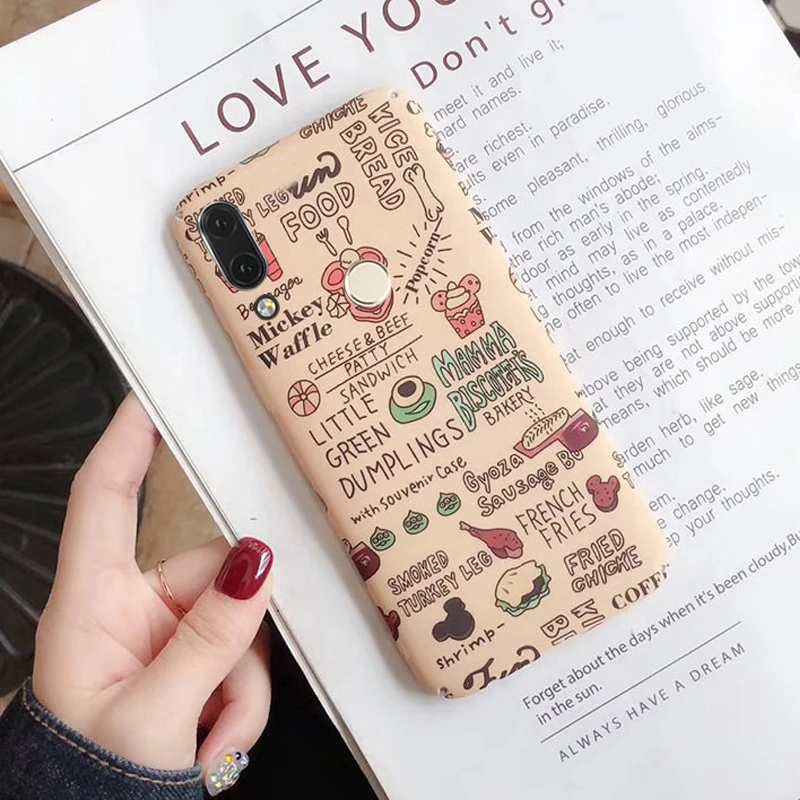 LOVE YOU
Don't gr
meet it and live it;
hard names.
are richest.
ults even in paradise.
some pleasant, thrilling, glorious
from the windows of the aims-
the rich man's abode;
door as early in the spring.
mind may live as contentedly
thoughts, as in a palace.
me often to live the most indepen-
at enough to receive without mis-
above being supported by the town
at they are not above supporting
means, which should be more
garden herb, like sage.
much to get new things,
change.
ep your thoughts.
Forget about the days when it's been cloudy,But
in the sun.
ALWAYS HAVE A DREAM
CHICKE
MICE
BREAD
shrimp-
SMOKED
TURKEY LEG
Fun
FOOD
Popcorn
Beverages
Mickey
Waffle
CHEESE & BEEF
PATTY
SANDWICH
MAMMA
BISCOTTI'S
BAKERY
LITTLE
GREEN
DUMPLINGS
with Souvenir Case
Gyoza
Sausage Bu
FRENCH
FRIES
SMOKED
TURKEY LEG
FRIED
CHICKE
COFF
MI
BE
shrimp-
Fun